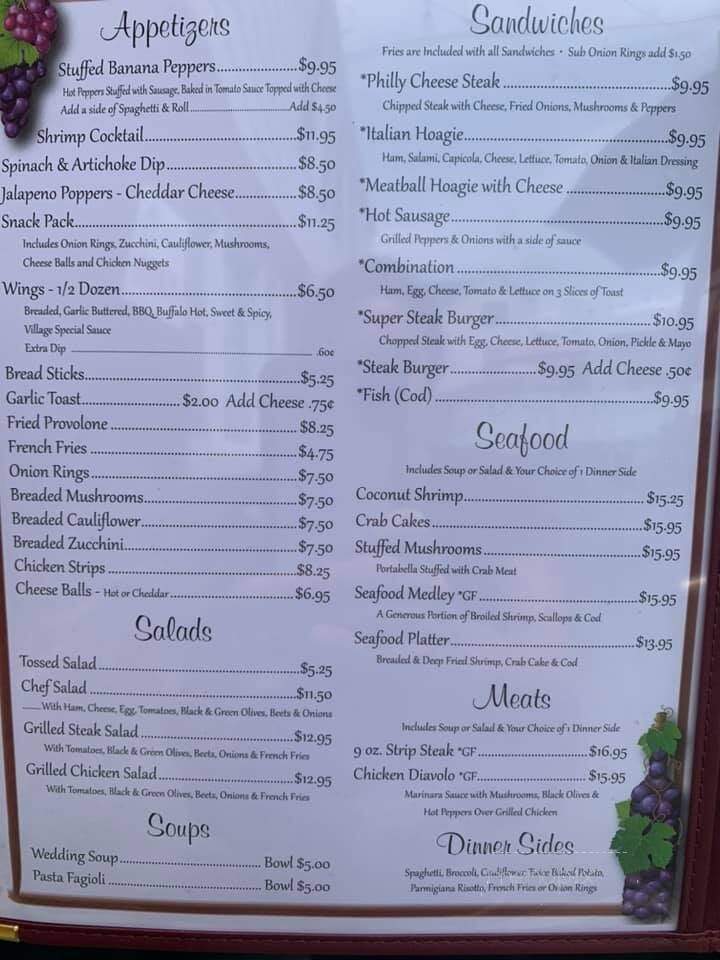 Appetizers
Stuffed Banana Peppers....................$9.95
Hot Peppers Stuffed with Sausage, Baked in Tomato Sauce Topped with Cheese
Add a side of Spaghetti & Roll....................Add $4.50
Shrimp Cocktail....................$11.95
Spinach & Artichoke Dip....................$8.50
Jalapeno Poppers - Cheddar Cheese....................$8.50
Snack Pack....................$11.25
Includes Onion Rings, Zucchini, Cauliflower, Mushrooms,
Cheese Balls and Chicken Nuggets
Wings - 1/2 Dozen....................$6.50
Breaded, Garlic Buttered, BBQ, Buffalo Hot, Sweet & Spicy,
Village Special Sauce
Extra Dip .................... .60¢
Bread Sticks....................$5.25
Garlic Toast....................$2.00 Add Cheese .75¢
Fried Provolone....................$8.25
French Fries....................$4.75
Onion Rings....................$7.50
Breaded Mushrooms....................$7.50
Breaded Cauliflower....................$7.50
Breaded Zucchini....................$7.50
Chicken Strips....................$8.25
Cheese Balls - Hot or Cheddar....................$6.95
Salads
Tossed Salad....................$5.25
Chef Salad....................$11.50
With Ham, Cheese, Egg, Tomatoes, Black & Green Olives, Beets & Onions
Grilled Steak Salad....................$12.95
With Tomatoes, Black & Green Olives, Beets, Onions & French Fries
Grilled Chicken Salad....................$12.95
With Tomatoes, Black & Green Olives, Beets, Onions & French Fries
Soups
Wedding Soup.................... Bowl $5.00
Pasta Fagioli.................... Bowl $5.00
Sandwiches
Fries are Included with all Sandwiches • Sub Onion Rings add $1.50
*Philly Cheese Steak....................$9.95
Chipped Steak with Cheese, Fried Onions, Mushrooms & Peppers
*Italian Hoagie....................$9.95
Ham, Salami, Capicola, Cheese, Lettuce, Tomato, Onion & Italian Dressing
*Meatball Hoagie with Cheese....................$9.95
*Hot Sausage....................$9.95
Grilled Peppers & Onions with a side of sauce
*Combination....................$9.95
Ham, Egg, Cheese, Tomato & Lettuce on 3 Slices of Toast
*Super Steak Burger....................$10.95
Chopped Steak with Egg, Cheese, Lettuce, Tomato, Onion, Pickle & Mayo
*Steak Burger....................$9.95 Add Cheese .50¢
*Fish (Cod)....................$9.95
Seafood
Includes Soup or Salad & Your Choice of 1 Dinner Side
Coconut Shrimp....................$15.25
Crab Cakes....................$15.95
Stuffed Mushrooms....................$15.95
Portabella Stuffed with Crab Meat
Seafood Medley *GF....................$15.95
A Generous Portion of Broiled Shrimp, Scallops & Cod
Seafood Platter....................$13.95
Breaded & Deep Fried Shrimp, Crab Cake & Cod
Meats
Includes Soup or Salad & Your Choice of 1 Dinner Side
9 oz. Strip Steak *GF....................$16.95
Chicken Diavolo *GF....................$15.95
Marinara Sauce with Mushrooms, Black Olives &
Hot Peppers Over Grilled Chicken
Dinner Sides
Spaghetti, Broccoli, Cauliflower, Twice Baked Potato,
Parmigiana Risotto, French Fries or Onion Rings